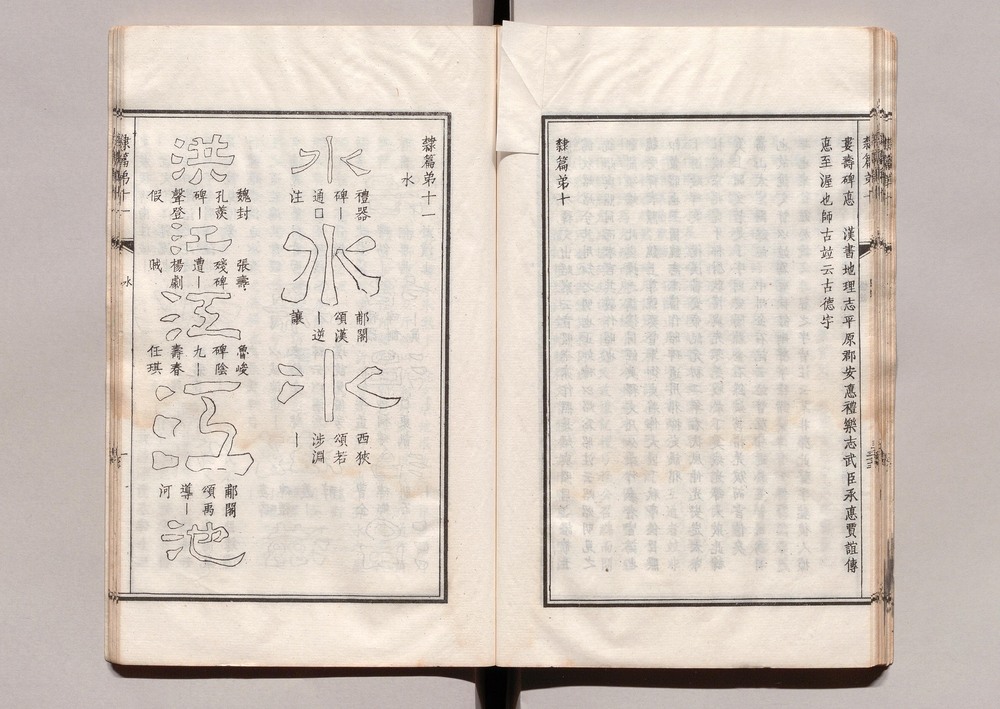 隸篇弟十
婁壽碑悳 漢書地理志平原郡安悳禮樂志武臣承悳賈誼傳
悳至渥也師古竝云古德字
隸篇弟十
隸篇弟十一
水
水
禮器
碑｜
通□
注
水
郙閣
頌漢
｜逆
讓
水
西狹
頌若
涉淵
｜
洪
魏封
孔羨
碑｜
聲登
假
江
張壽
殘碑
遭｜
楊劇
賊
江
魯峻
碑陰
九｜
壽春
任琪
江
郙閣
頌禹
導｜
河
池
隸篇弟十一
水
一